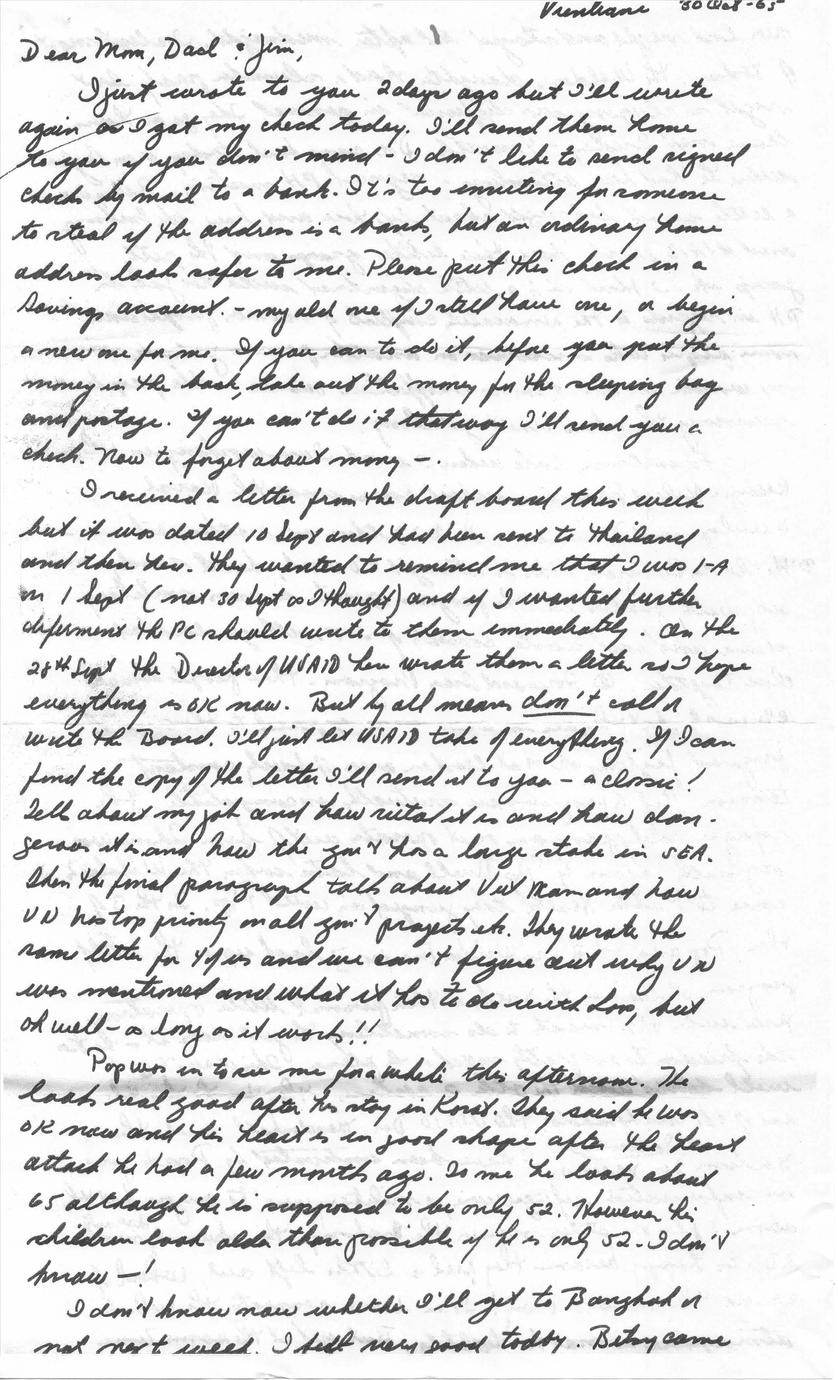 Vientiane 30 Oct-65
1
Dear Mom, Dad & Jim,
I just wrote to you 2 days ago but I'll write
again as I got my check today. I'll send them home
to you if you don't mind - I don't like to send signed
checks by mail to a bank. It's too inviting for someone
to steal if the address is a bank, but an ordinary home
address looks safer to me. Please put this check in a
Savings account. - my old one if I still have one, or begin
a new one for me. If you can to do it, before you put the
money in the bank, take out the money for the sleeping bag
and postage. If you can't do it that way I'll send you a
check. Now to forget about money -.
I received a letter from the draft board this week
but it was dated 10 Sept and had been sent to Thailand
and then here. They wanted to remind me that I was 1-A
on 1 Sept (not 30 Sept as I thought) and if I wanted further
deferment the PC should write to them immediately. On the
28th Sept the Director of USAID here wrote them a letter so I hope
everything is OK now. But by all means don't call or
write the Board. I'll just let USAID take of everything. If I can
find the copy of the letter I'll send it to you - a classic!
Tell about my job and how vital it is and how dan-
gerous it is and how the gov't has a large stake in SEA.
Then the final paragraph talks about Viet Nam and how
VN has top priority on all gov't projects etc. They wrote the
same letter for 4 of us and we can't figure out why VN
was mentioned and what it has to do with Laos, but
oh well - as long as it works!!
Pop was in to see me for a while this afternoon. He
looks real good after his stay in Korat. They said he was
OK now and his heart is in good shape after the heart
attack he had a few months ago. To me he looks about
65 although he is supposed to be only 52. However his
children look older than possible if he is only 52. I don't
know -!
I don't know now whether I'll get to Bangkok or
not next week. I felt very good today. Betsy came